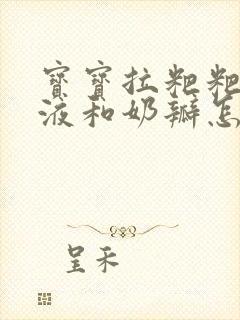 寶寶拉粑粑
液和奶瓣怎
呈禾